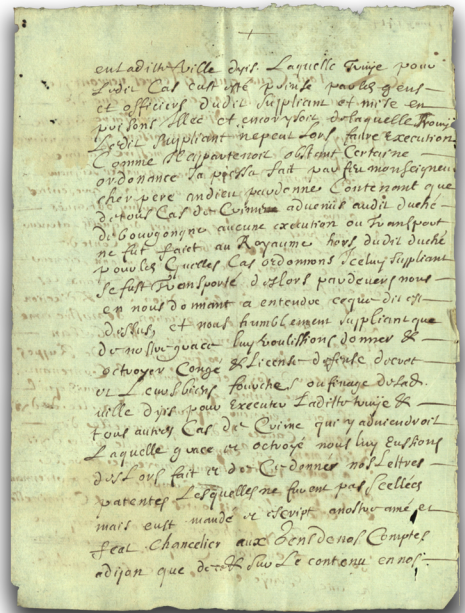 en ladite ville dyis Laquelle truye pour
Ledit Cas eust esté prinse par les gens
et officiers dudit suppliant et mise en
prisons illec et encorysoit de laquelle truye
Ledit suppliant ne peut lors faire execution
Comme il appartenoit obstant Certaine
ordonance ja piessa fait par feu monseigneur
cher pere an dieu pardonne Contenant que
de tous Cas de Crime advenus audit duché
de bourgongne aucune execution ou transport
ne fut faict au Royaume hors dudit duché
pour les quelles Cas ordonnons Iceluy suppliant
se fust transporté deslors par devers nous
en nous donnant a entendre ce que dit est
dessus, et nous humblement suppliant que
de nostre grace luy voulissions donner &
octroyer Congé & License
et Lever fourches ou finage de lad
ville dyis pour executer Ladite truye &
tous autres Cas de Crime qui y adviendroit
Laquelle grace et octroye nous luy eussions
des Lors fait et de Ce donner nos Lettres
patentes Lesquelles ne furent pas scellées
mais eust mandé et escript a nostre amé et
feal Chancelier aux gens de nos Comptes
a dijon que sur Le contenu en nos